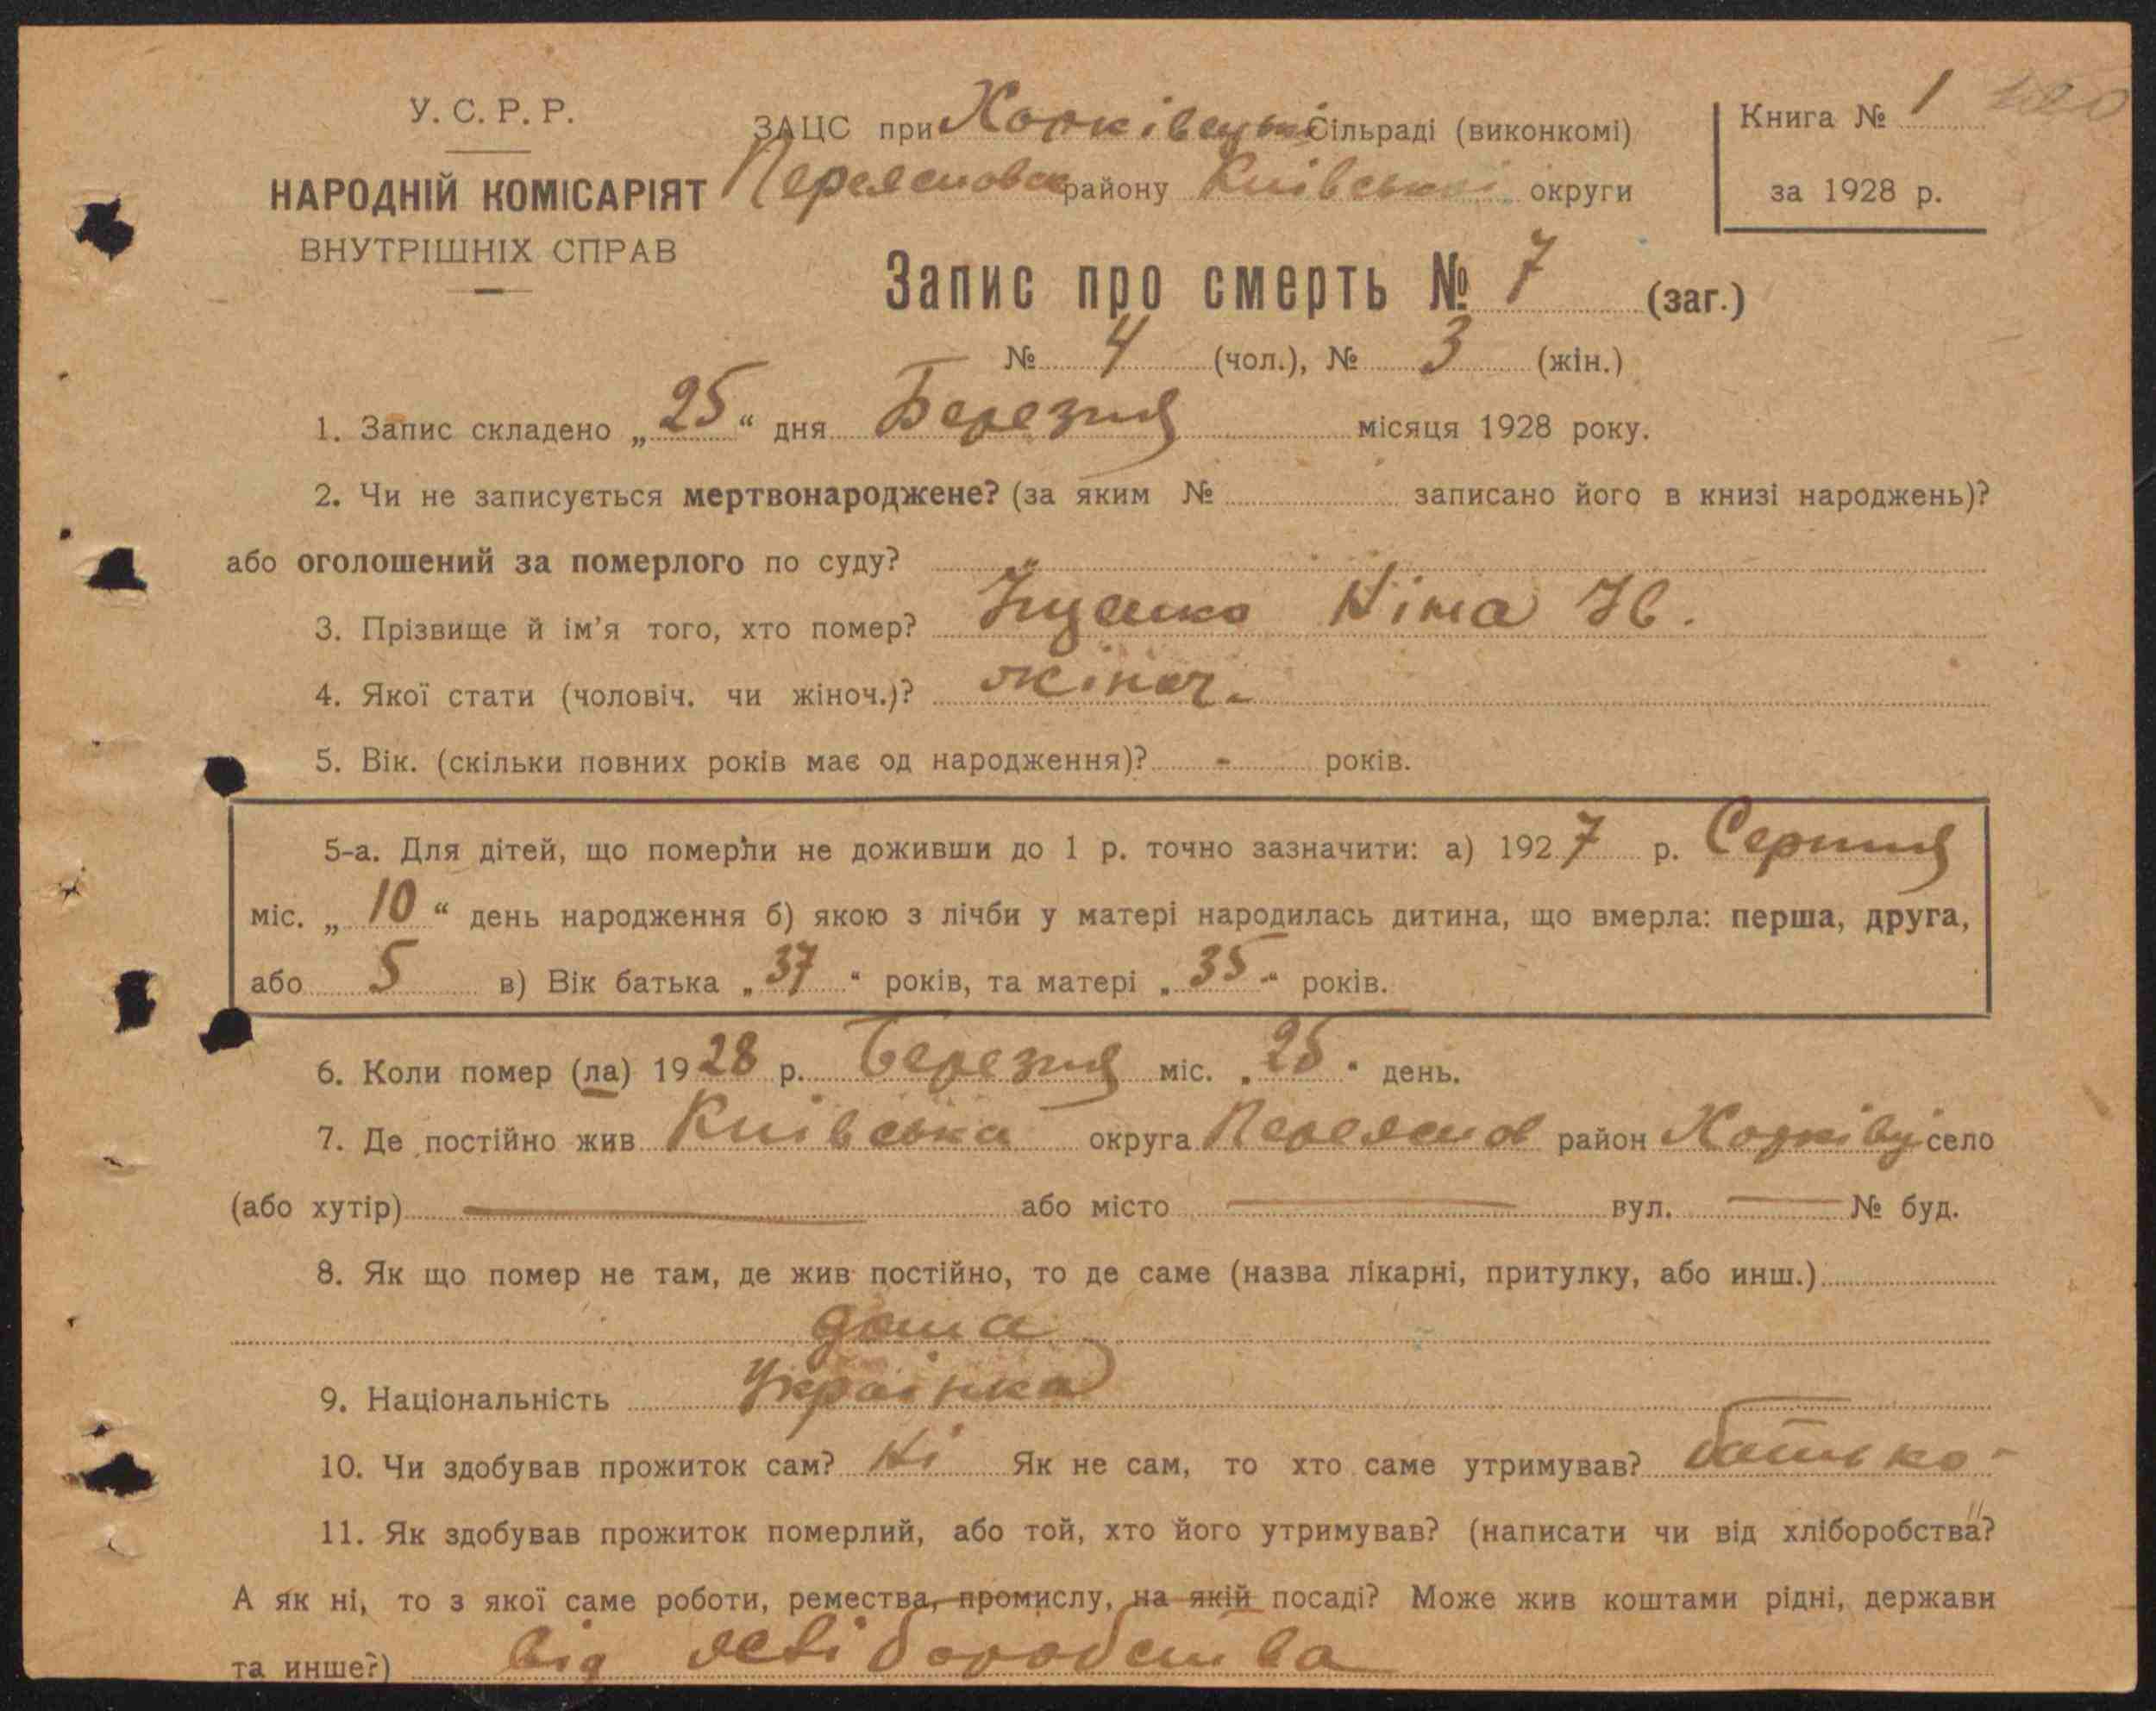 У. С. Р. Р.
НАРОДНІЙ КОМІСАРІЯТ
ВНУТРІШНІХ СПРАВ
ЗАЦС при Хоцківецькі сільраді (виконкомі)
Переяславск району Київської округи
Книга № 1
за 1928 р.
Запис про смерть № 7 (заг.)
№ 4 (чол.), № 3 (жін.)
1. Запис складено „25“ дня Березня місяця 1928 року.
2. Чи не записується мертвонароджене? (за яким № записано його в книзі народжень)?
або оголошений за померлого по суду?
3. Прізвище й ім'я того, хто помер? Іщенко Ніна Ів.
4. Якої стати (чоловіч. чи жіноч.)? жіноч.
5. Вік. (скільки повних років має од народження)? - років.
5-а. Для дітей, що померли не доживши до 1 р. точно зазначити: а) 1927 р. Серпня
міс. „10“ день народження б) якою з лічби у матері народилась дитина, що вмерла: перша, друга,
або 5 в) Вік батька „37“ років, та матері „35“ років.
6. Коли помер (ла) 1928 р. Березня міс. „25“ день.
7. Де постійно жив Київська округа Переяслов район Хоцківці село
(або хутір) — або місто — вул. — № буд.
8. Як що помер не там, де жив постійно, то де саме (назва лікарні, притулку, або инш.)
дома
9. Національність Українка
10. Чи здобував прожиток сам? Ні Як не сам, то хто саме утримував? батько
11. Як здобував прожиток померлий, або той, хто його утримував? (написати чи від хліборобства?
А як ні, то з якої саме роботи, ремества, промислу, на якій посаді? Може жив коштами рідні, держави
та инше?) від хліборобства